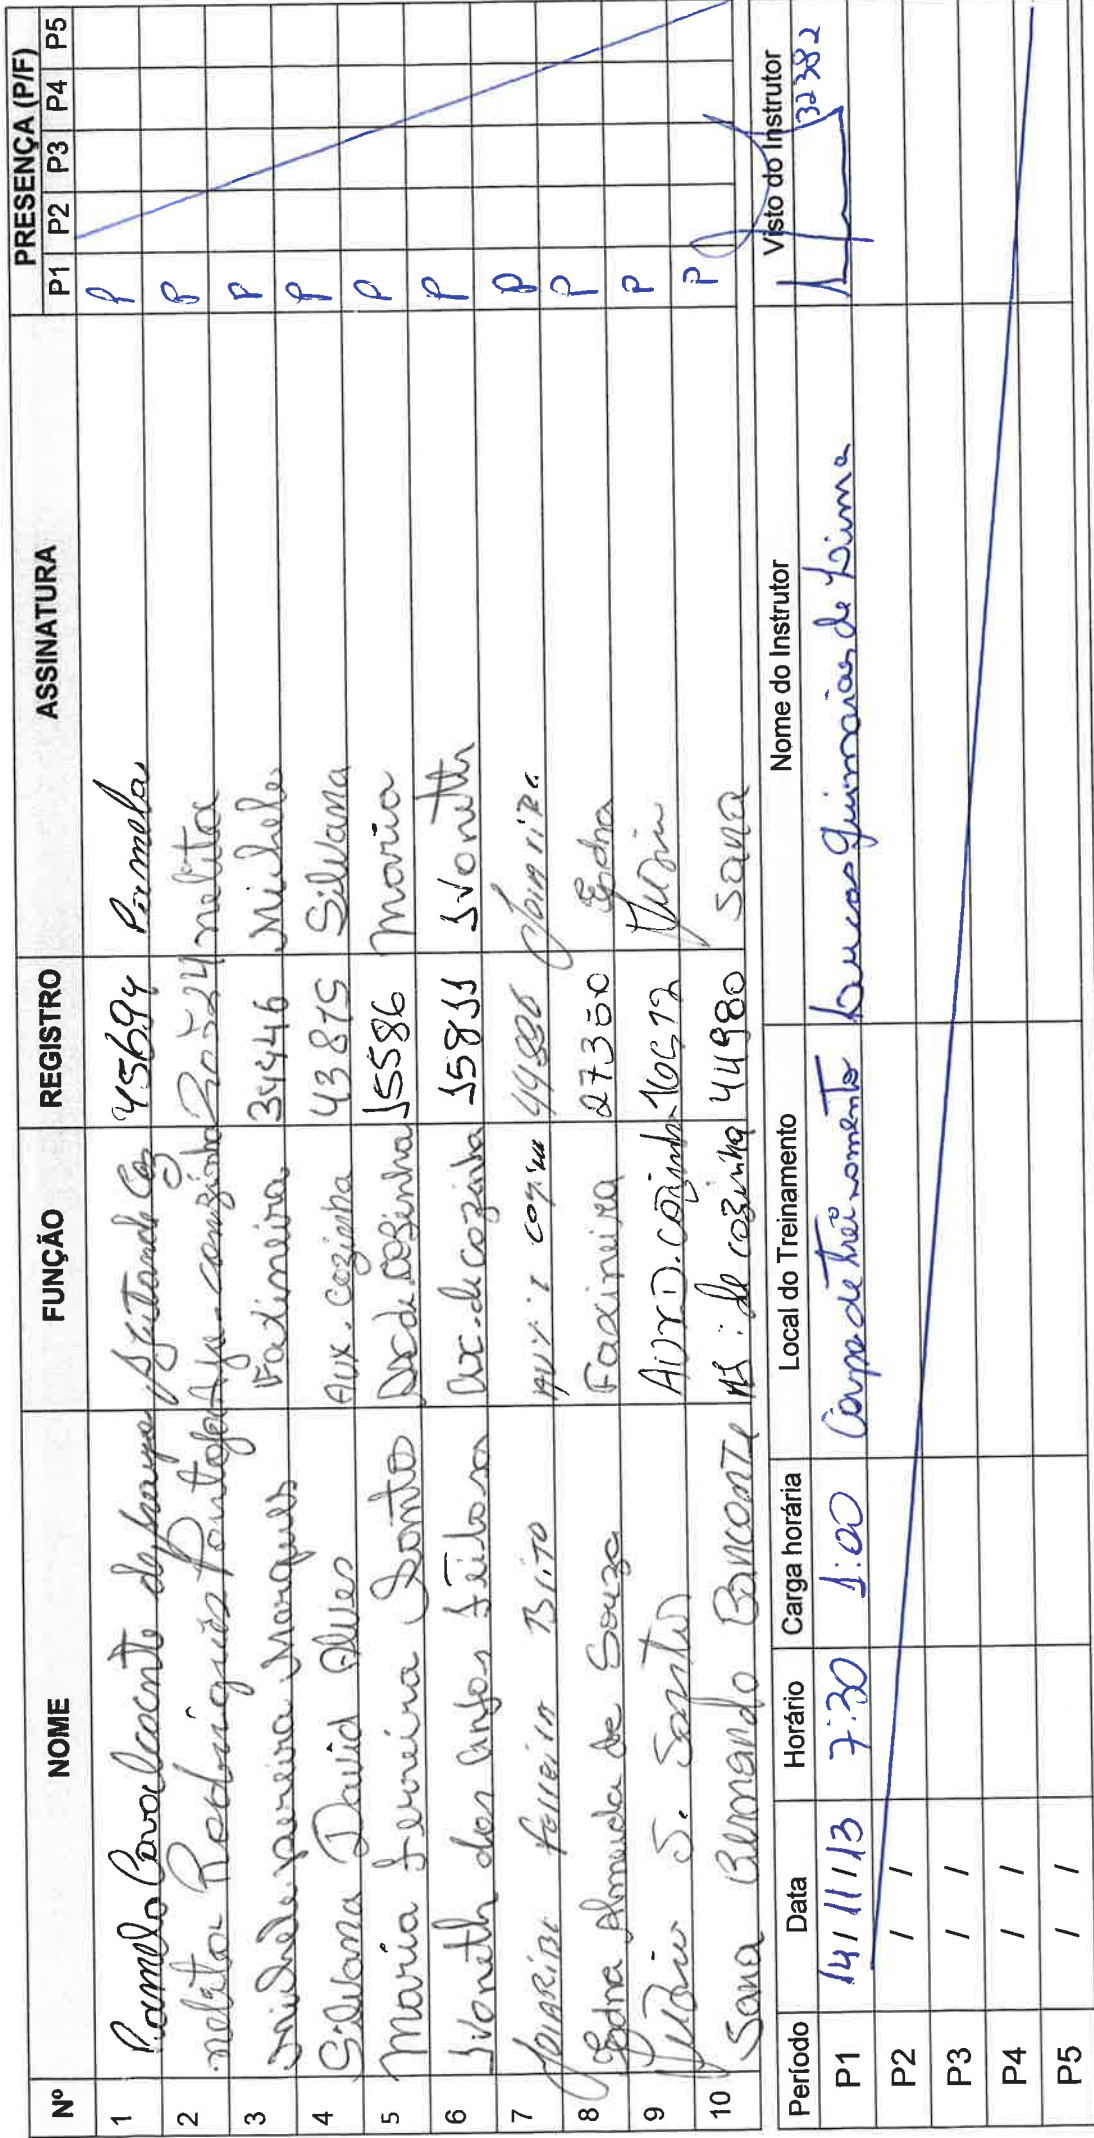 Nº NOME FUNÇÃO REGISTRO ASSINATURA PRESENÇA (P/F)
P1 P2 P3 P4 P5
1 Pamela Cavalcante de 45694 Pamela P
2 melita Rodrigues Pontoja melita P
3 Michele pereira Marques Faxineira 34446 Michele P
4 Silvana David Alves Aux. Cozinha 43875 Silvana P
5 Maria Ferreira Santos cozinha 15586 Maria P
6 Ivoneth dos Anjos Feitosa Aux. de cozinha 15811 Ivoneth P
7 Brito P
8 Edna Almeida de Souza Faxineira 27300 Edna P
9 S. Santos cozinha P
10 Sana Bernardo de cozinha 44980 Sana P
Período Data Horário Carga horária Local do Treinamento Nome do Instrutor Visto do Instrutor
P1 14/11/13 7:30 1:00 Campo de treinamento Lucas Guimarães de Lima 32382
P2 / /
P3 / /
P4 / /
P5 / /